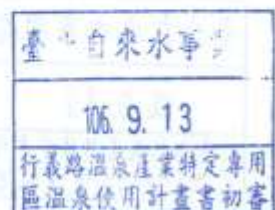 臺北自來水事
106. 9. 13
行義路溫泉產業特定專用
區溫泉使用計畫書初審